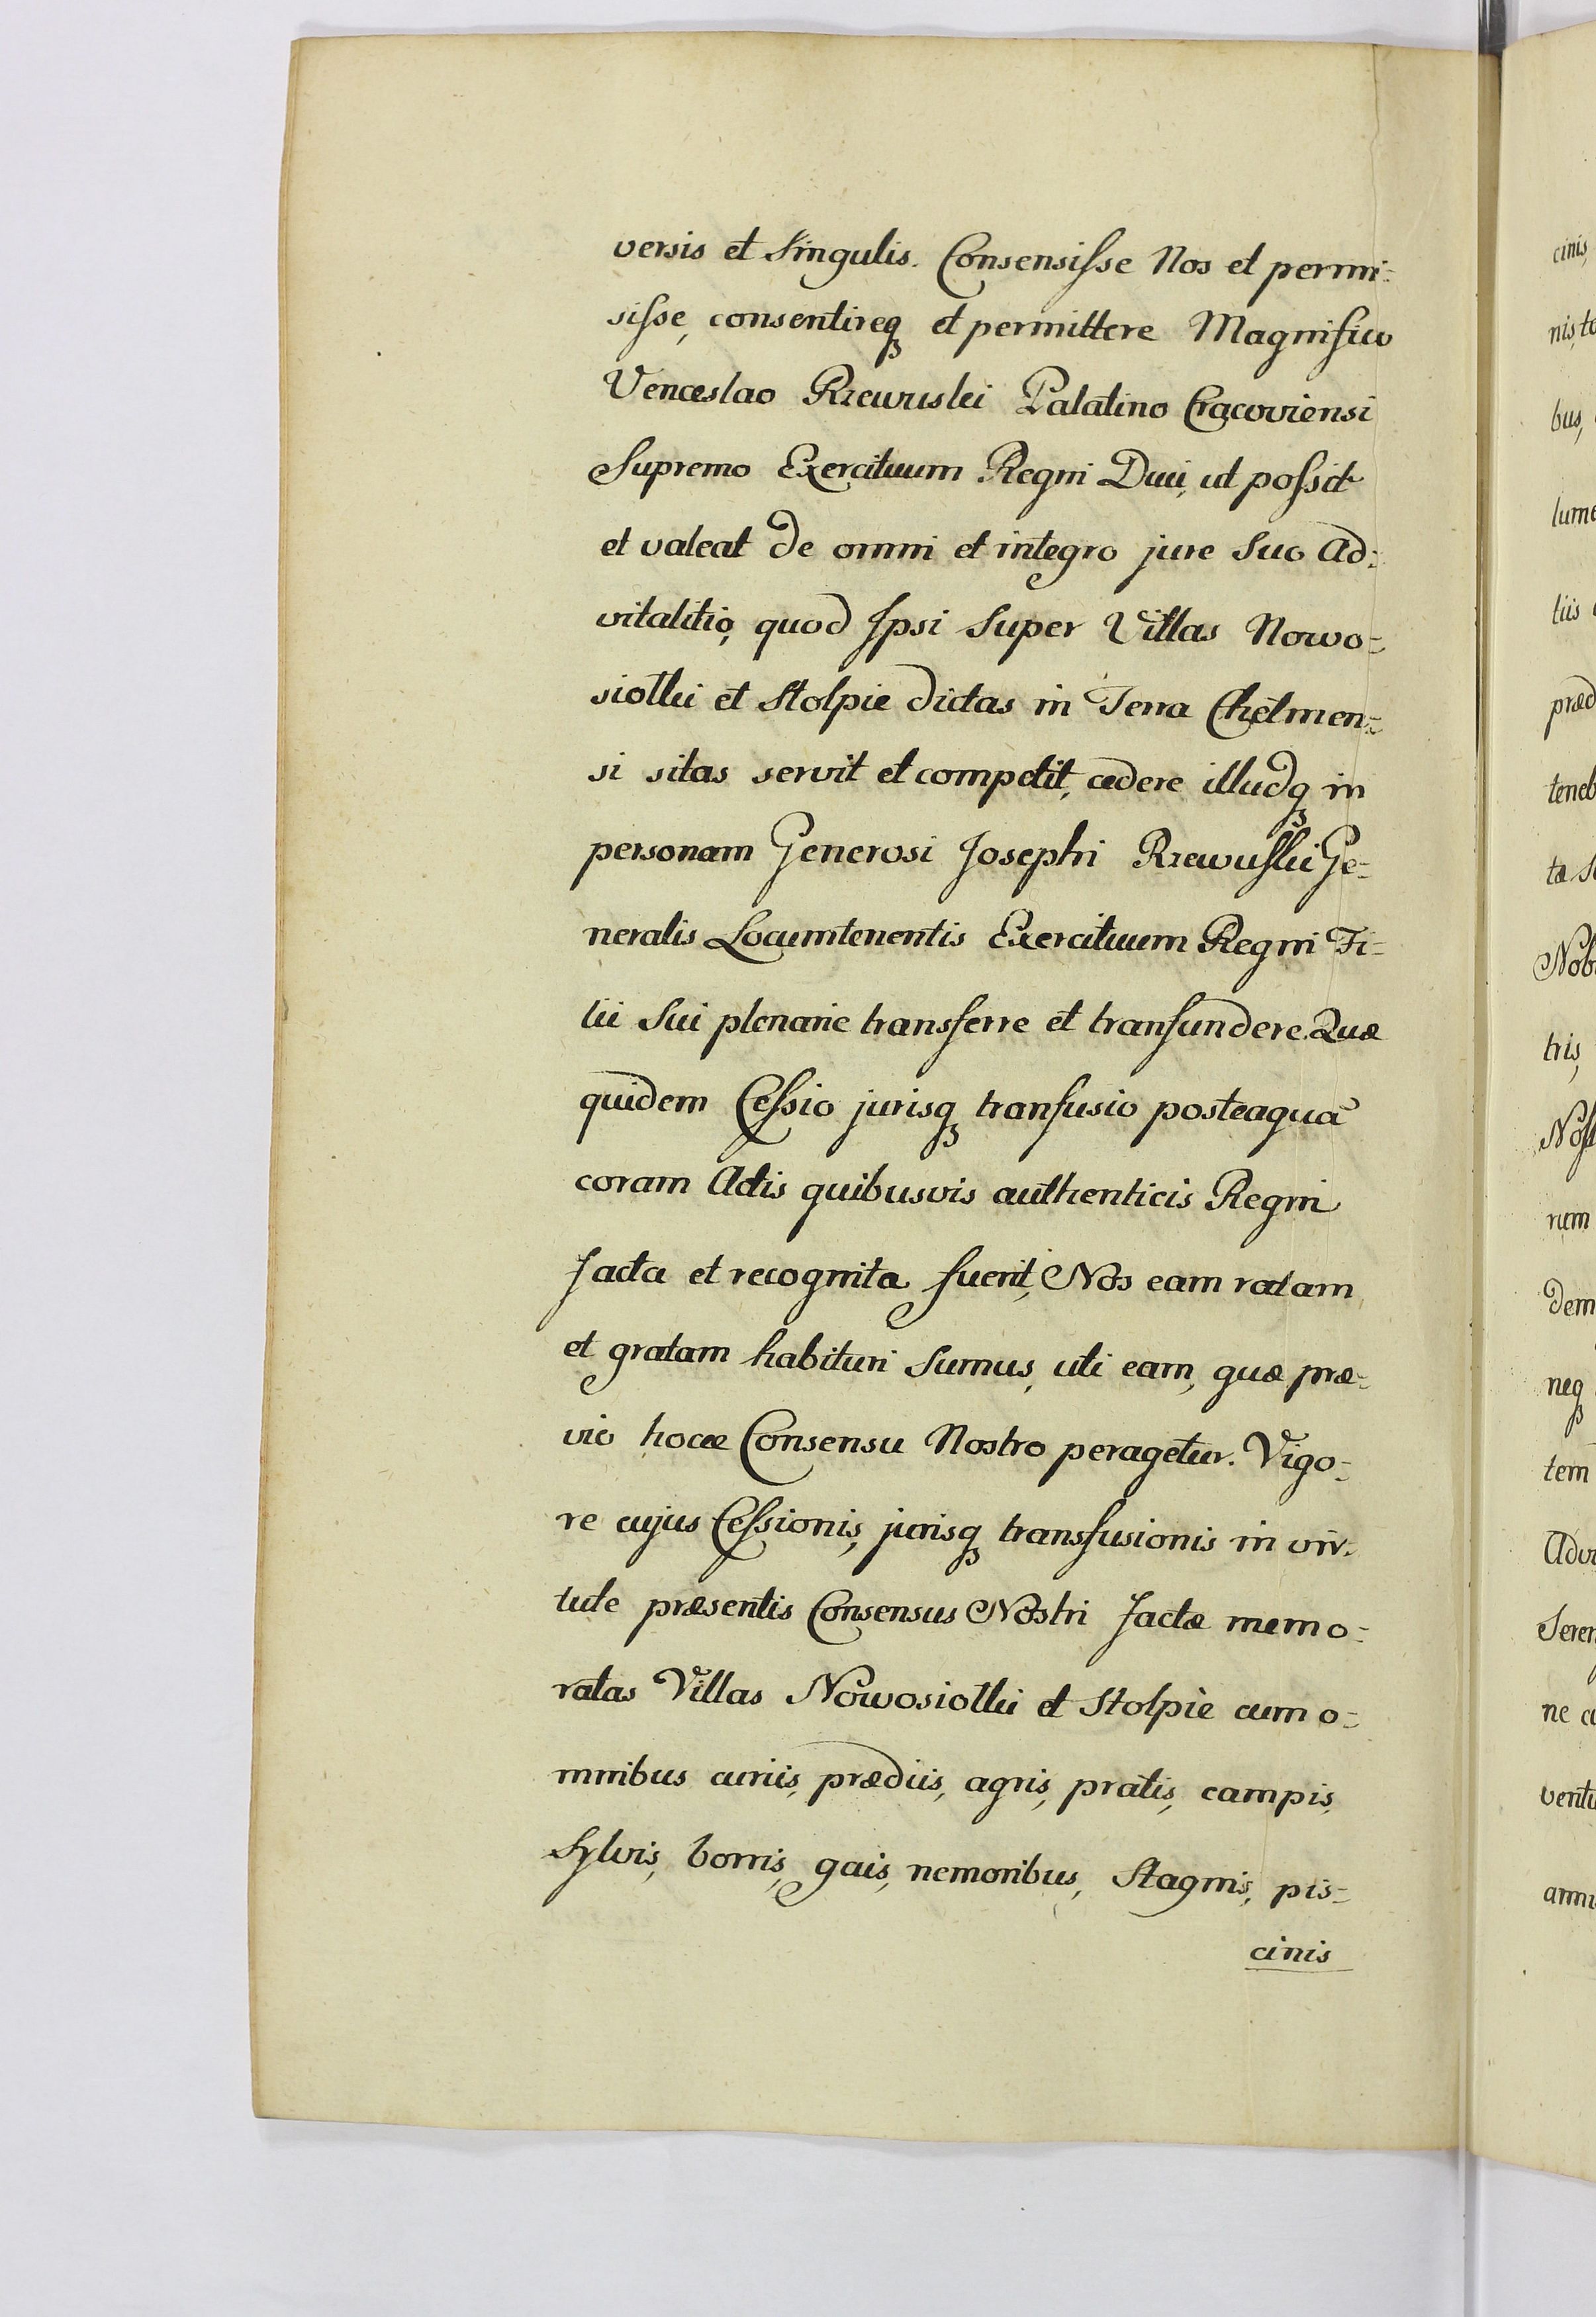 versis et Singulis. Consensisse Nos et permi=
sisse, consentireq₃ et permittere Magnifico
Venceslao Rzewuski Palatino Cracoviensi
Supremo Exercituum Regni Duci, ut possit
et valeat de omni et integro jure Suo Ad=
vitalitio, quod Ipsi Super Villas Nowo=
siołki et Stołpie dictas in Terra Chełmen=
si sitas servit et competit, cedere illudq₃ in
personam Generosi Josephi Rzewuski Ge=
neralis Locumtenentis Exercituum Regni Fi=
lii Sui plenarie transferre et transfundere. Quæ
quidem Cessio jurisq₃ transfusio posteaquã
coram Actis quibusvis authenticis Regni
facta et recognita fuerit, Nos eam ratam
et gratam habituri Sumus, uti eam, quæ præ=
vio hocce Consensu Nostro peragetur. Vigo=
re cujus Cessionis, jurisq₃ transfusionis in vir=
tute præsentis Consensus Nostri factæ memo=
ratas Villas Nowosiołki et Stołpie cum o=
mnibus curiis, prædiis, agris, pratis, campis,
Sylvis, borris, gais, nemoribus, Stagnis, pis=
cinis
cinis,
bus,
tris,
nem
neq₃
tem